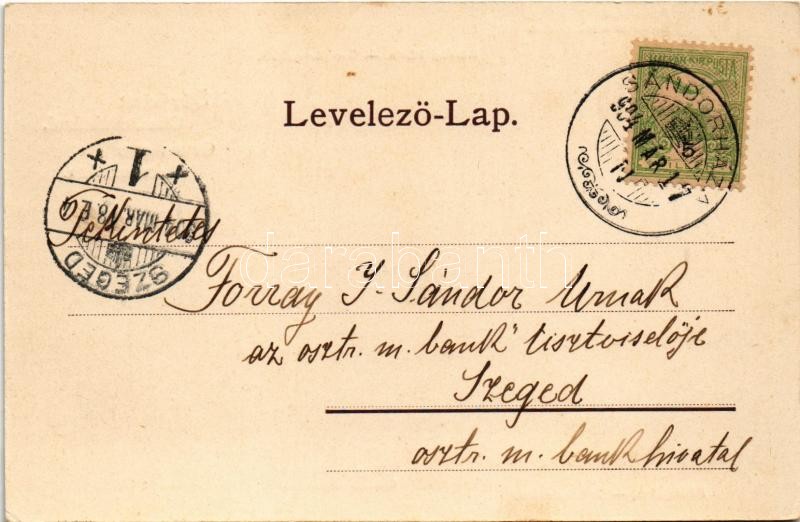 MAGYAR KIR. POSTA
SÁNDORHÁZA
904 MAR 17
Levelezö-Lap.
SZEGED
1
Tekintetes
Forray J. Sándor Urnak
az osztr. m. bank" tisztviselője
Szeged
osztr. m. bank hivatal
darabanth